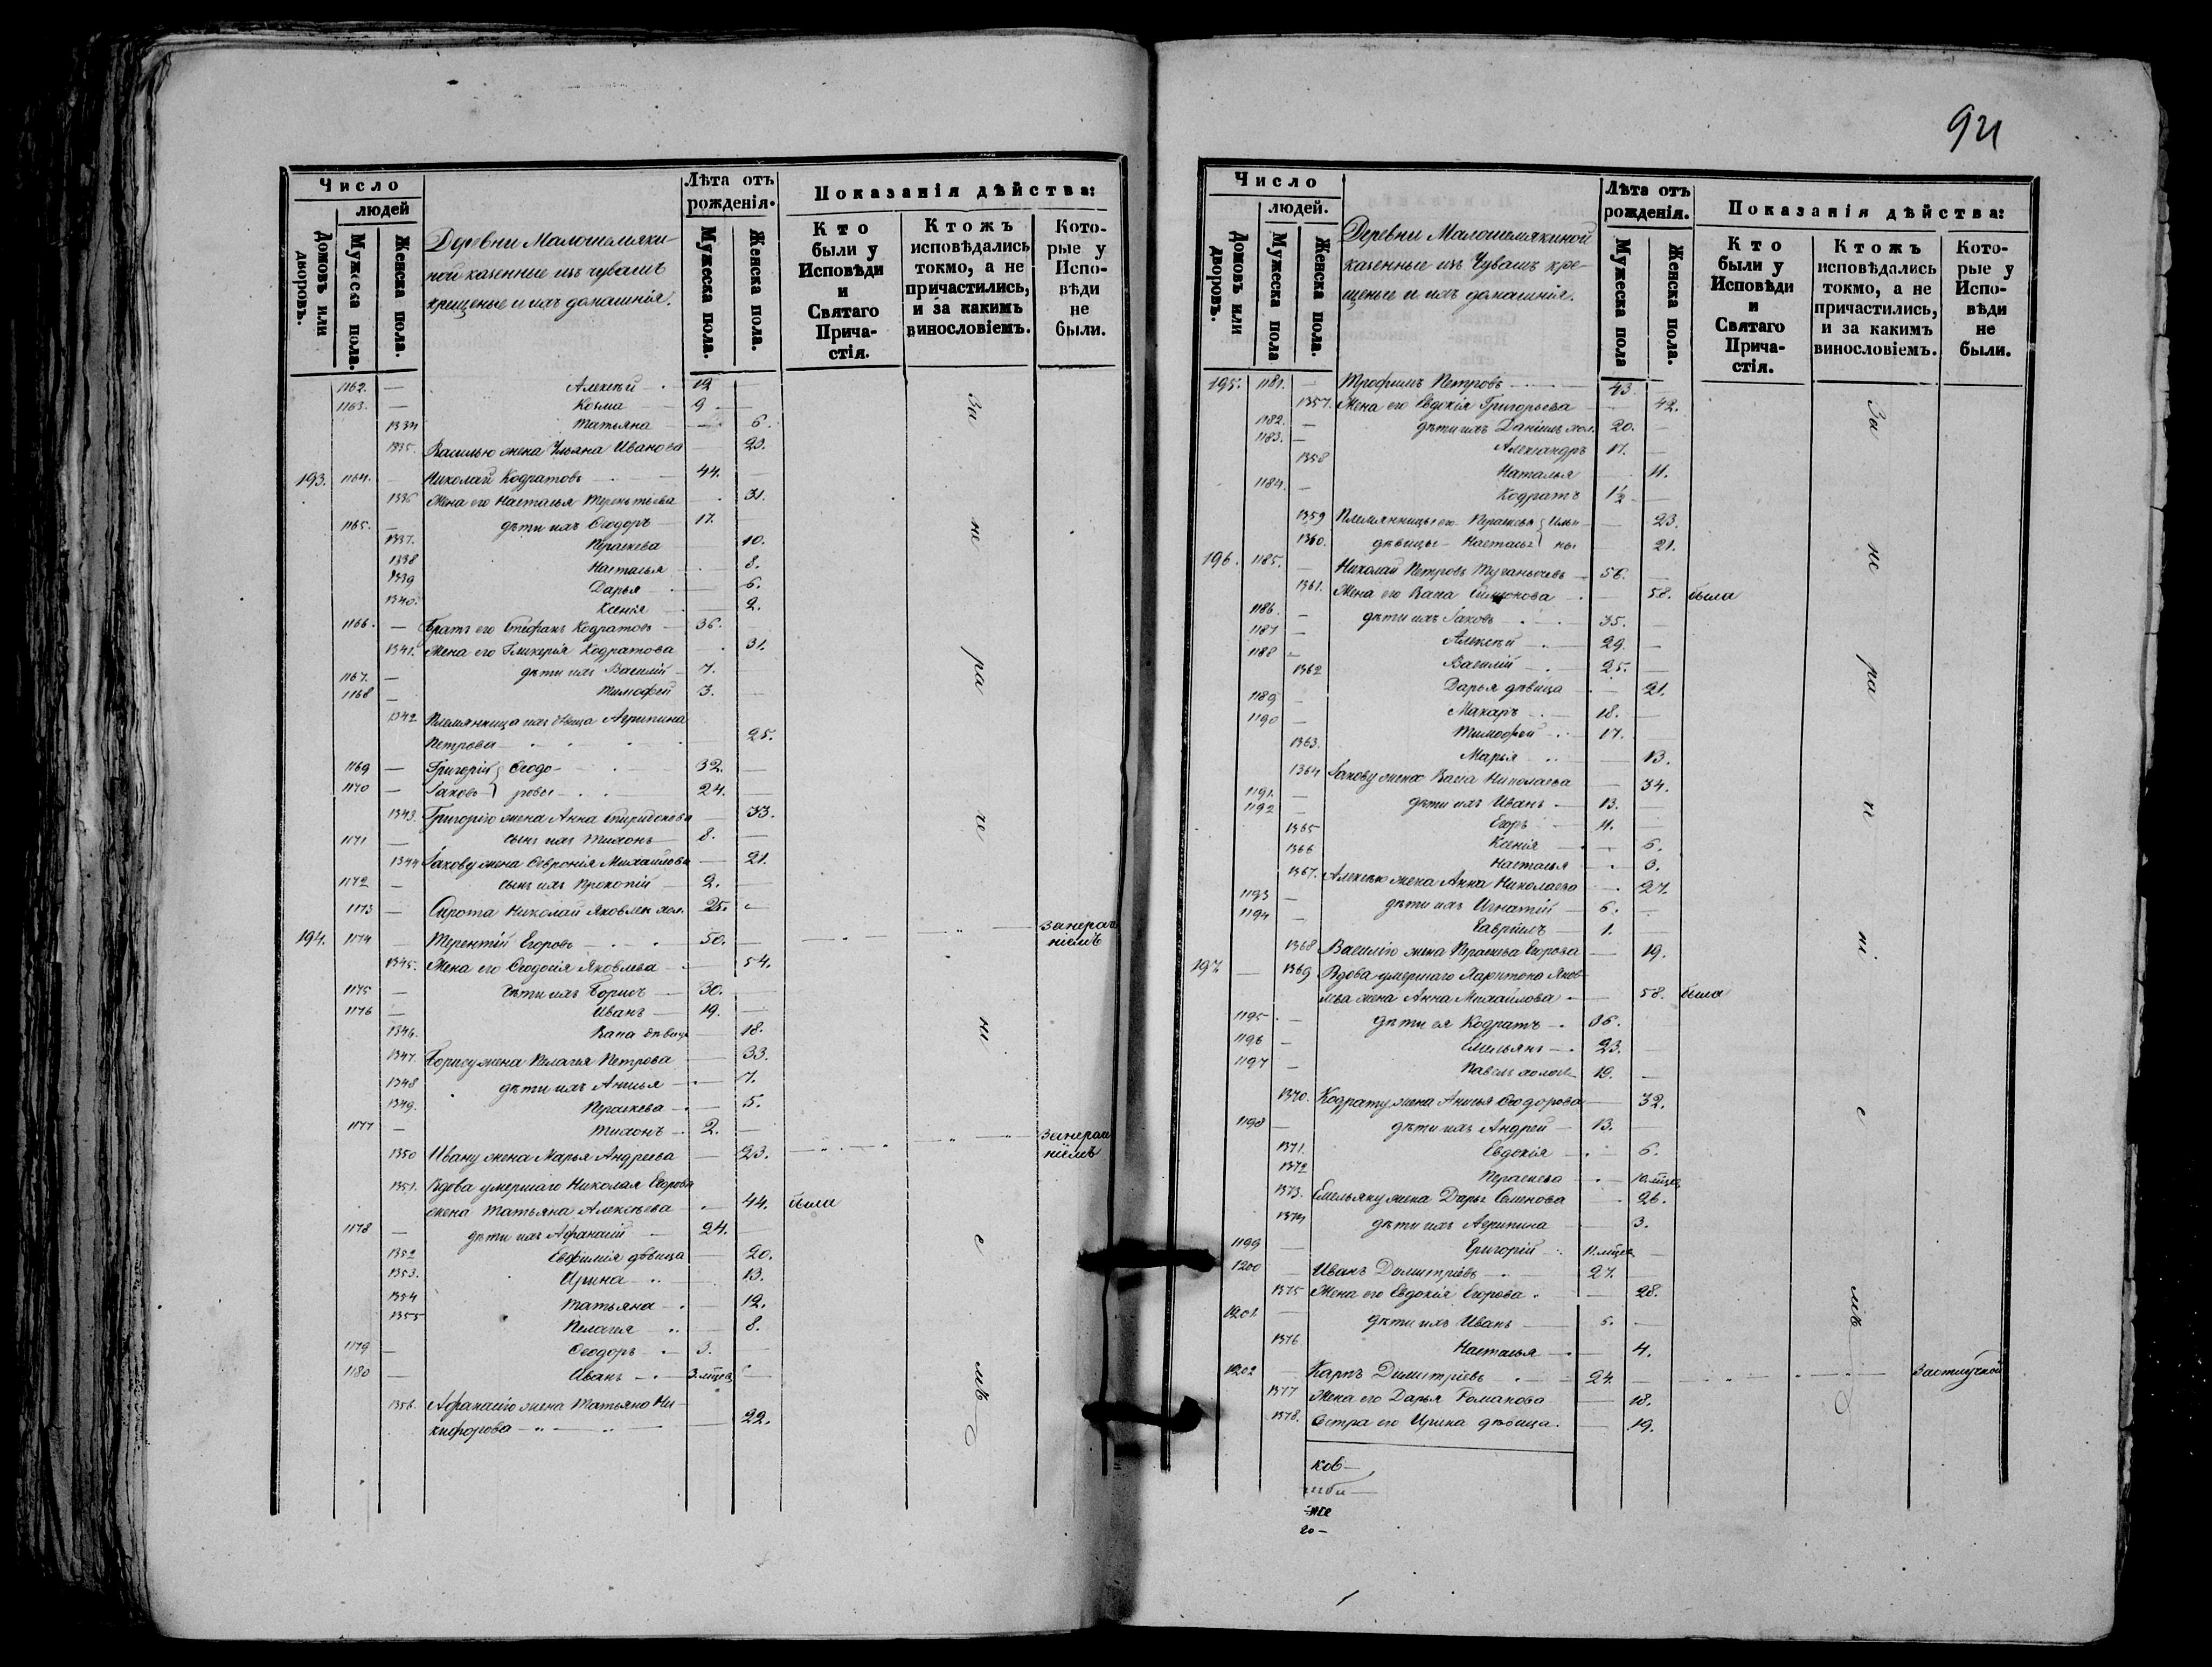 94
Число
людей
Домовъ или дворовъ.
Мужеска пола.
Женска пола.
Деревни Малошемяки-
ной казенные изъ чувашъ
крещеные и ихъ домашнія.
Лѣта отъ рожденія.
Мужеска пола.
Женска пола.
Показанія дѣйства:
Кто были у Исповѣди и Святаго Причастія.
Ктожъ исповѣдались токмо, а не причастились, и за какимъ винословіемъ.
Которые у Исповѣди не были.
1162. — Алексѣй — 12 —
1163. — Козма — 9 —
1334 Татьяна — 6.
1335. Василью жена Ульяна Иванова — 23.
193. 1164. — Николай Кодратовъ — 44. —
1336 Жена его Настасья Терентьева — 31.
1165. — дѣти ихъ Ѳеодоръ — 17. —
1337. Параскева — 10.
1338 Настасья — 8.
1339 Дарья — 6.
1340. Ксенія — 2.
1166. — Братъ его Стефанъ Кодратовъ — 36. —
1341. Жена его Гликерія Кодратова — 31.
1167. — дѣти ихъ Василій — 7.
1168 — Тимофей 3. —
1342 Племянница ихъ дѣвица Агрипина
Петрова — 25.
1169 — Григорій } Ѳеодо- 32. —
1170 — Іаковъ } ровы — 24. —
1343. Григорію жена Анна Спиридонова — 33.
1171 — сынъ ихъ Тихонъ — 8. —
1344 Іакову жена Ѳевронія Михайлова — 21.
1172 — сынъ ихъ Прокопій — 2. —
1173 — Сирота Николай Яковлевъ хол. 25. —
194. 1174 — Терентій Егоровъ — 50. — занерач
ніемъ
1345. Жена его Ѳеодосія Яковлева — 54.
1175 — дѣти ихъ Борисъ — 30. —
1176 — Иванъ — 19. —
1346. Васа дѣвица — 18.
1347. Борису жена Пелагія Петрова — 33.
1348 дѣти ихъ Анисья — 7.
1349. Параскева — 5.
1177 — Тихонъ — 2. —
1350 Ивану жена Марья Андреева — 23. — занерач
ніемъ
1351. Вдова умершаго Николая Егорова
жена Татьяна Алексѣева — 44. была
1178 — дѣти ихъ Афанасій — 24. —
1352 Евфимія дѣвица — 20.
1353. Ирина — 13.
1354 Татьяна — 12.
1355 Пелагея — 8.
1179 — Ѳеодоръ — 3. —
1180 — Иванъ — 3. мѣсяц —
1356. Афанасію жена Татьяна Ни-
кифорова — 22.
За не ра че ні е мъ
Число
людей.
Домовъ или дворовъ.
Мужеска пола
Женска пола.
Деревни Малошемякиной
казенные изъ Чувашъ кре-
щеные и ихъ домашнія.
Лѣта отъ рожденія.
Мужеска пола
Женска пола.
Показанія дѣйства:
Кто были у Исповѣди и Святаго Причастія.
Ктожъ исповѣдались токмо, а не причастились, и за какимъ винословіемъ.
Которые у Исповѣди не были.
195. 1181. — Трофимъ Петровъ — 43.
1357. Жена его Евдокія Григорьева — 42.
1182. — дѣти ихъ Даніилъ хол. 20. —
1183. — Александръ 17. —
1358 Наталья — 11.
1184. — Кодратъ 1½ —
1359 Племянницы его Параскева } Ильи- — 23.
1360. дѣвицы — Настасья } ны. 21.
196. 1185. — Николай Петровъ — 56. —
1361. Жена его Васа Симеонова — 58. была
1186. — дѣти ихъ Іаковъ — 35. —
1187 — Алексѣй — 29. —
1188 — Василій — 25. —
1362 Дарья дѣвица — 21.
1189 — Макаръ — 18. —
1190 — Тимофей — 17. —
1363. Марья — 13.
1364 Іакову жена Васа Николаева — 34.
1191. — дѣти ихъ Иванъ — 13. —
1192 — Егоръ — 11. —
1365 Ксенія — 6.
1366 Настасья — 3.
1367. Алексѣю жена Анна Николаева — 27.
1193 — дѣти ихъ Игнатій — 6. —
1194 — Гавріилъ — 1. —
1368 Василію жена Параскева Егорова — 19.
197 — 1369 Вдова умершаго Харитона Яков-
лева жена Анна Михайлова — 58. была
1195 — дѣти ея Кодратъ — 36. —
1196 — Емельянъ — 23. —
1197 — Павелъ холост 19. —
1370. Кодрату жена Анисья Ѳеодорова — 32.
1198 — дѣти ихъ Андрей — 13. —
1371. Евдокія — 6.
1372 Параскева — 10. мѣсяц
1373. Емельяну жена Дарья Семенова — 26.
1374 дѣти ихъ Агрипина — 3.
1199 — Григорій — 11. мѣсяц —
1200 — Иванъ Димитріевъ — 27. —
1375 Жена его Евдокія Егорова — 28.
1201 — дѣти ихъ Иванъ — 5. —
1376 Настасья — 4.
1202 — Карпъ Димитріевъ — 24. — Заотлучкой
1377 Жена его Дарья Романова — 18.
1378. Сестра его Ирина дѣвица. — 19.
За не ра че ні е мъ
ков—